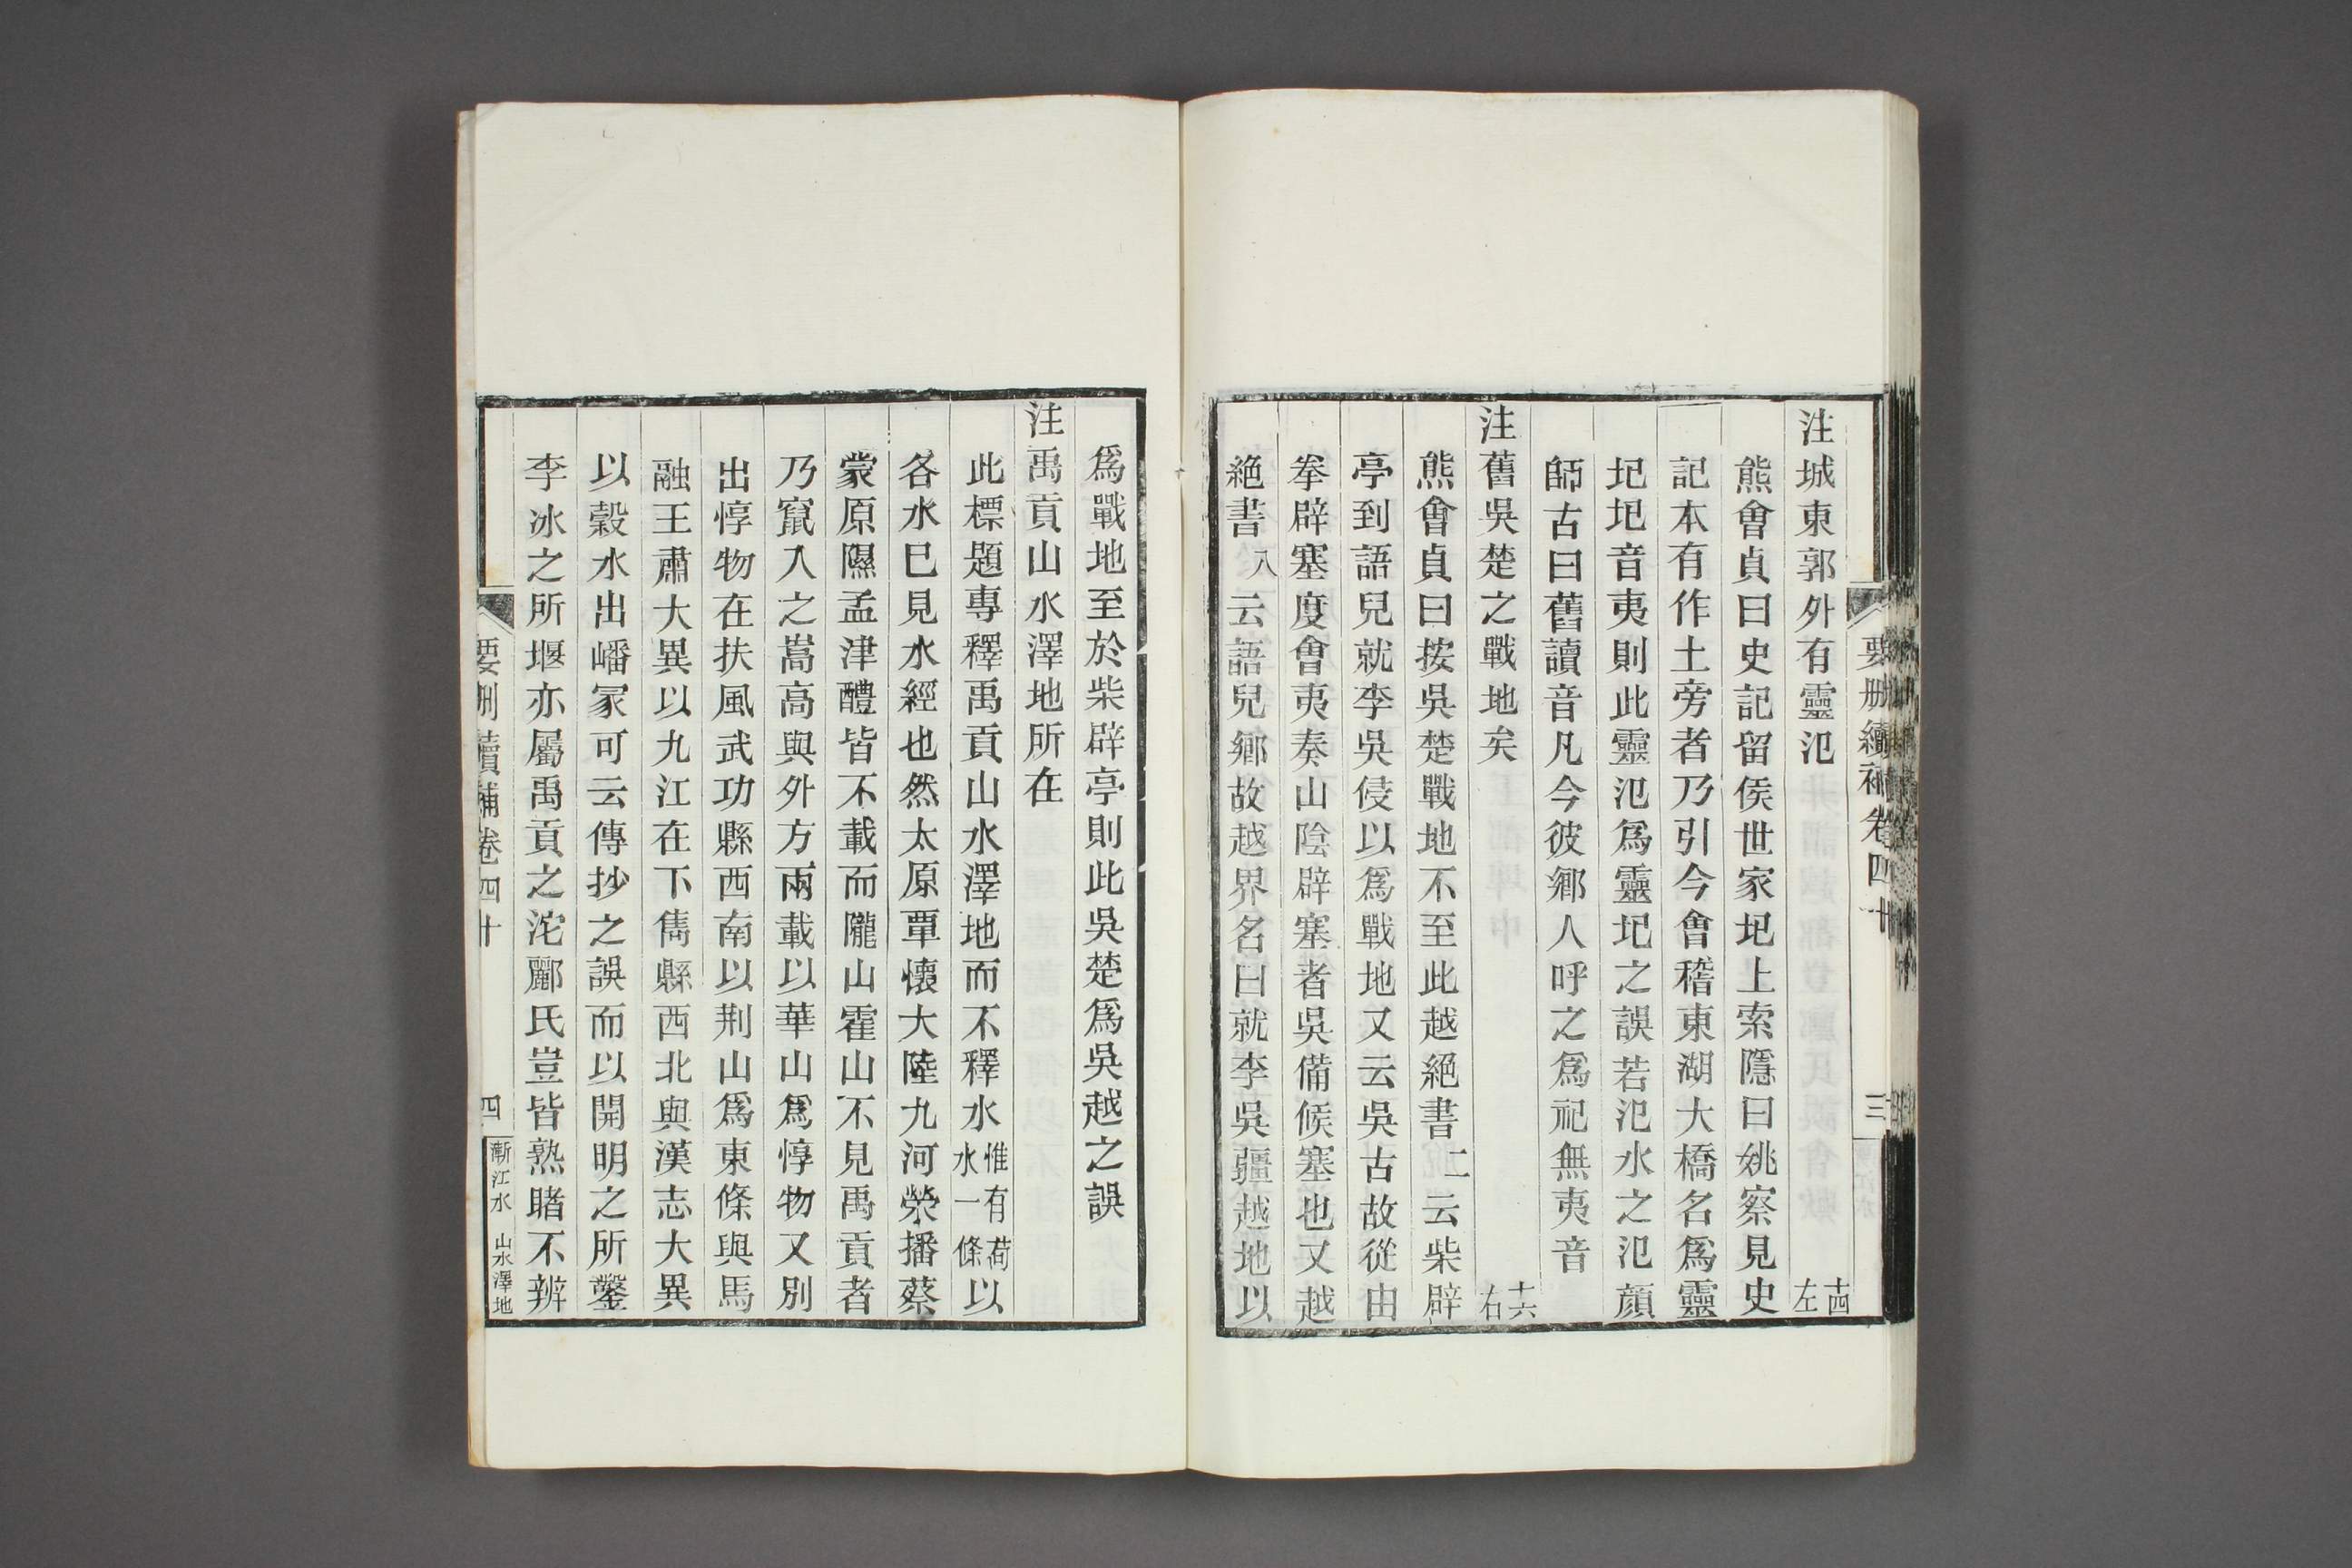 要刪續補卷四十
三
注城東郭外有靈氾十四左
熊會貞曰史記留侯世家圯上索隱曰姚察見史
記本有作土旁者乃引今會稽東湖大橋名爲靈
圯圯音夷則此靈氾爲靈圯之誤若氾水之氾顔
師古曰舊讀音凡今彼鄉人呼之爲祀無夷音
注舊吳楚之戰地矣十六右
熊會貞曰按吳楚戰地不至此越絕書二云柴辟
亭到語兒就李吳侵以爲戰地又云吳古故從由
拳辟塞度會夷奏山陰辟塞者吳備候塞也又越
絕書八云語兒鄉故越界名曰就李吳疆越地以
爲戰地至於柴辟亭則此吳楚爲吳越之誤
注禹貢山水澤地所在
此標題專釋禹貢山水澤地而不釋水惟有荷水一條以
各水巳見水經也然太原覃懷大陸九河滎播蔡
蒙原隰孟津醴皆不載而隴山霍山不見禹貢者
乃竄入之嵩高與外方兩載以華山爲惇物又別
出惇物在扶風武功縣西南以荆山爲東條與馬
融王肅大異以九江在下雋縣西北與漢志大異
以穀水出嶓冢可云傳抄之誤而以開明之所鑿
李冰之所堰亦屬禹貢之沱酈氏豈皆熟睹不辨
要刪續補卷四十
四
漸江水 山水澤地